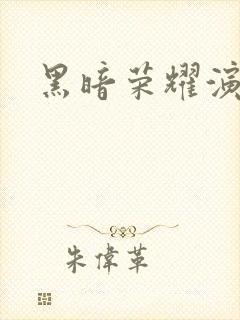 黑暗荣耀演
朱偉革